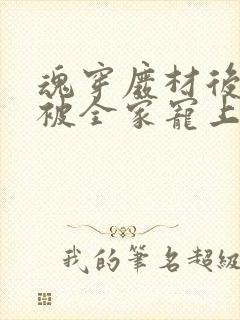 魂穿廢材後
被全家寵上
我的筆名超級